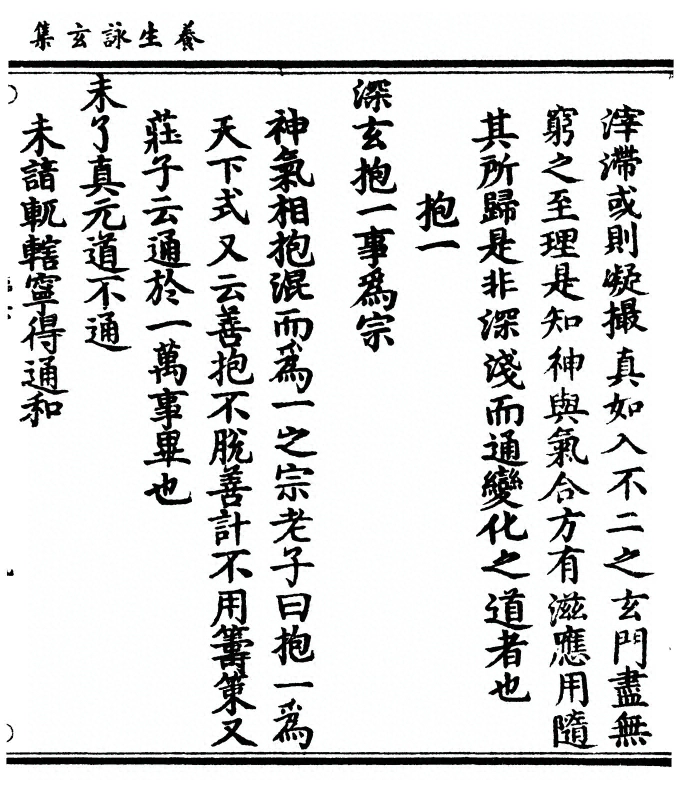 養生詠玄集
滓滯或則凝撮真如入不二之玄門盡無
窮之至理是知神與氣合方有滋應用隨
其所歸是非深淺而通變化之道者也
抱一
深玄抱一事為宗
神氣相抱混而為一之宗老子曰抱一為
天下式又云善抱不脫善計不用籌策又
莊子云通於一萬事畢也
未了真元道不通
未諳軏轄寧得通和